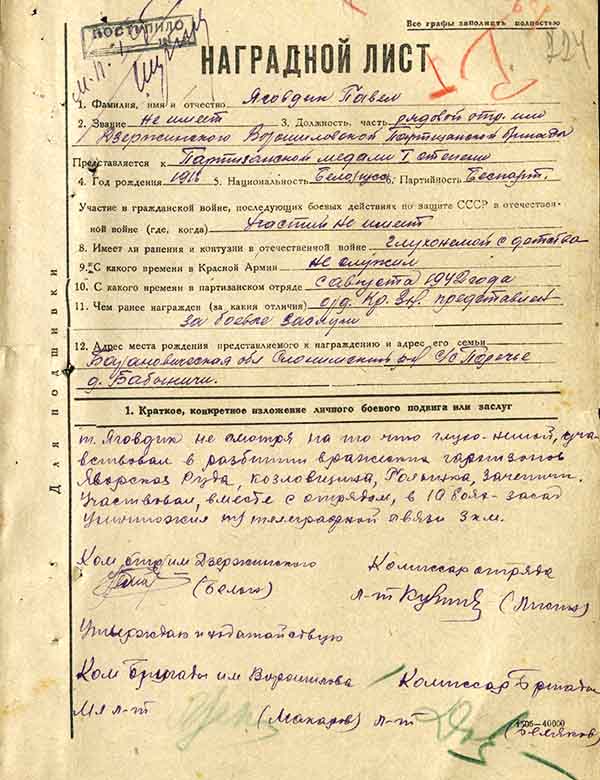 Все графы заполнять полностью
ПОСТУПИЛО
НАГРАДНОЙ ЛИСТ
224
1. Фамилия, имя и отчество Яговдик Павел
2. Звание не имеет 3. Должность, часть рядовой отр. им.
Дзержинского Ворошиловской Партизанской бригады
Представляется к Партизанской медали I степени
4. Год рождения 5. Национальность Белорусс 6. Партийность Беспарт.
Участие в гражданской войне, последующих боевых действиях по защите СССР в отечествен-
ной войне (где, когда) Участий не имеет
8. Имеет ли ранения и контузии в отечественной войне Глухонемой с детства
9. С какого времени в Красной Армии не служил
10. С какого времени в партизанском отряде с августа 1942 года
11. Чем ранее награжден (за какия отличия) орд. Кр. Зв. представлен
За боевые заслуги
12. Адрес места рождения представляемого к награждению и адрес его семьи
Барановическая обл Слонимский р-н С/С Поречье
д. Бабыничи.
Для подшивки
1. Краткое, конкретное изложение личного боевого подвига или заслуг
т. Яговдик не смотря на то что глухо-немой, уча-
ствовал в разбитии вражеских гарнизонов
Яворская Руда, Козловщина,
Участвовал, вместе с отрядом, в 10 засад
телеграфной связи 3 км.
Ком. отр им Дзержинского Комиссар отряда
л-т
Утверждаю и ходатайствую
Ком Бригады им Ворошилова Комиссар Бригады
Мл л-т (Макаров) л-т (Беляков)
1505-40000